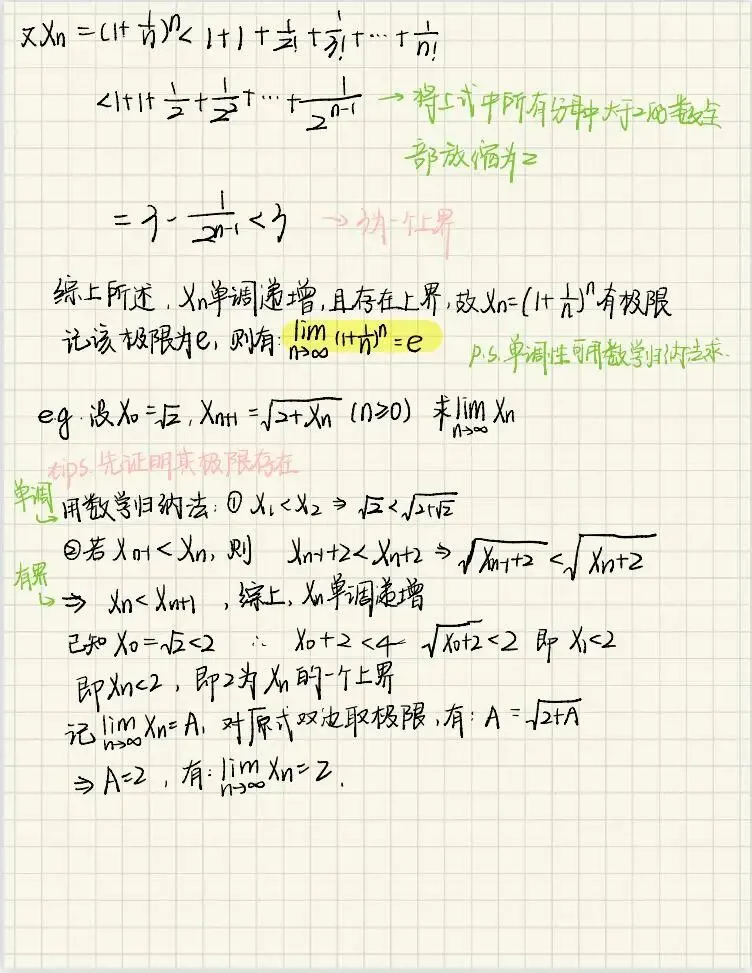 又Xn = (1+1/n)^n < 1+1+1/2!+1/3!+…+1/n!
<1+1+1/2+1/2²+…+1/2^(n-1) → 将上式中所有分母中大于2的数全
部放缩为2
= 3 - 1/2^(n-1) < 3 → 3为一个上界
综上所述, Xn单调递增,且存在上界,故Xn=(1+1/n)^n有极限
记该极限为e, 则有: lim n→∞ (1+1/n)^n = e
p.s.单调性可用数学归纳法求.
e.g. 设X₀=√2, Xn+1=√(2+Xn) (n≥0) 求lim n→∞ Xn
tips.先证明其极限存在
单调 用数学归纳法: ① X₁<X₂ ⇒ √2<√(2+√2)
②若Xn-1<Xn, 则 Xn-1+2<Xn+2 ⇒ √(Xn-1+2) < √(Xn+2)
有界 ⇒ Xn<Xn+1 ,综上, Xn单调递增
已知X₀=√2<2 ∴ X₀+2<4 √(X₀+2)<2 即 X₁<2
即Xn<2, 即2为Xn的一个上界
记 lim n→∞ Xn=A, 对原式双边取极限,有: A=√(2+A)
⇒ A=2, 有: lim n→∞ Xn=2.